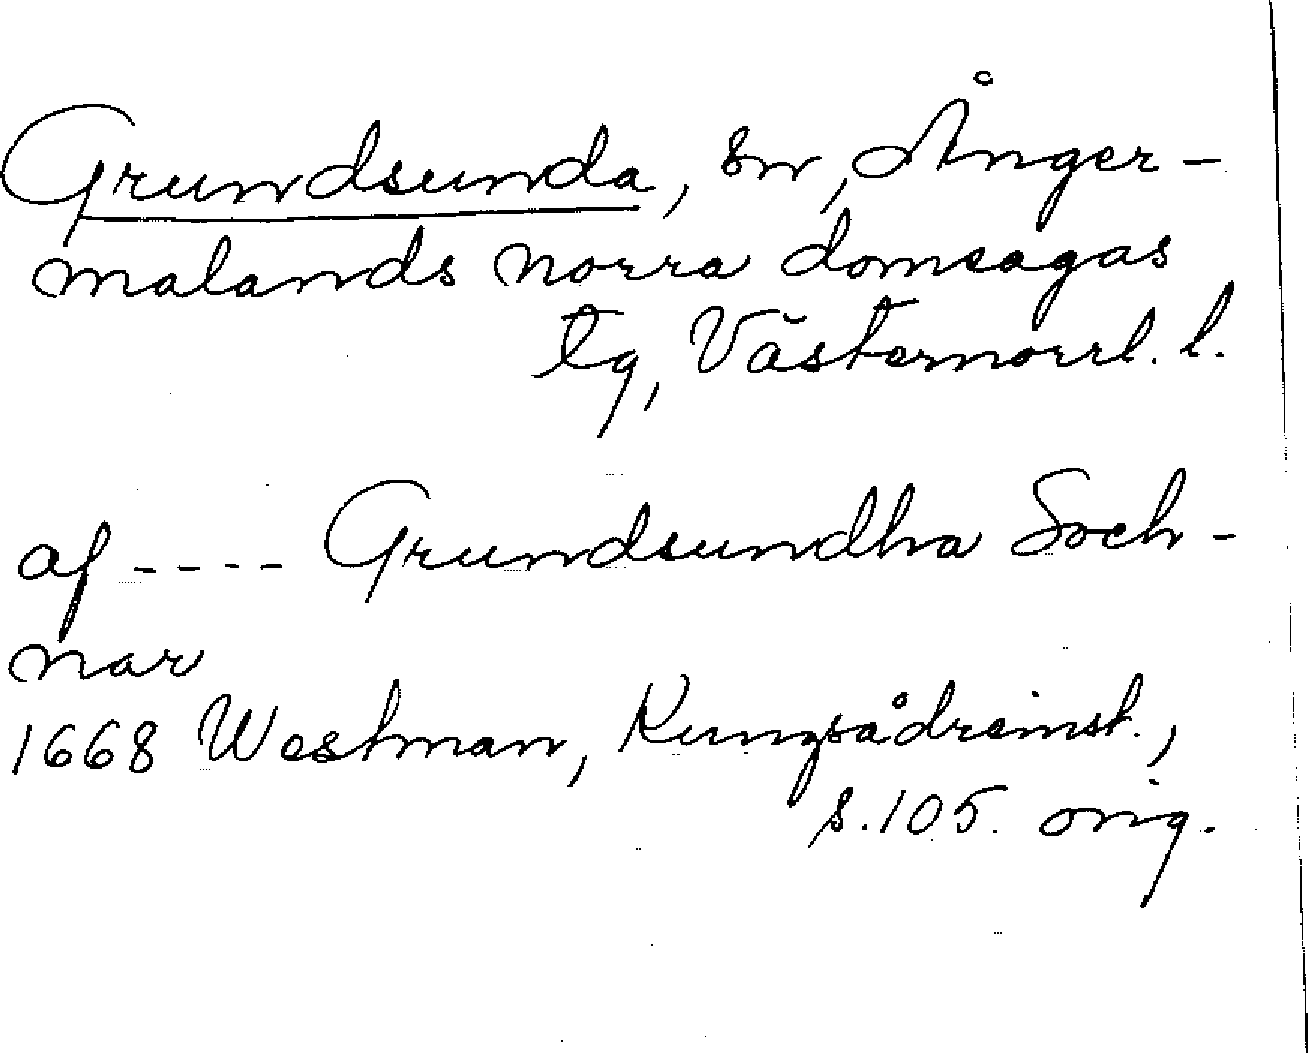 Grundsunda, sn, Ånger-
malands norra domsagas
tg, Västernorrl. l.
af ---- Grundsundha Soch-
nar
1668 Westman, Kungsådreinst.,
s. 105. orig.